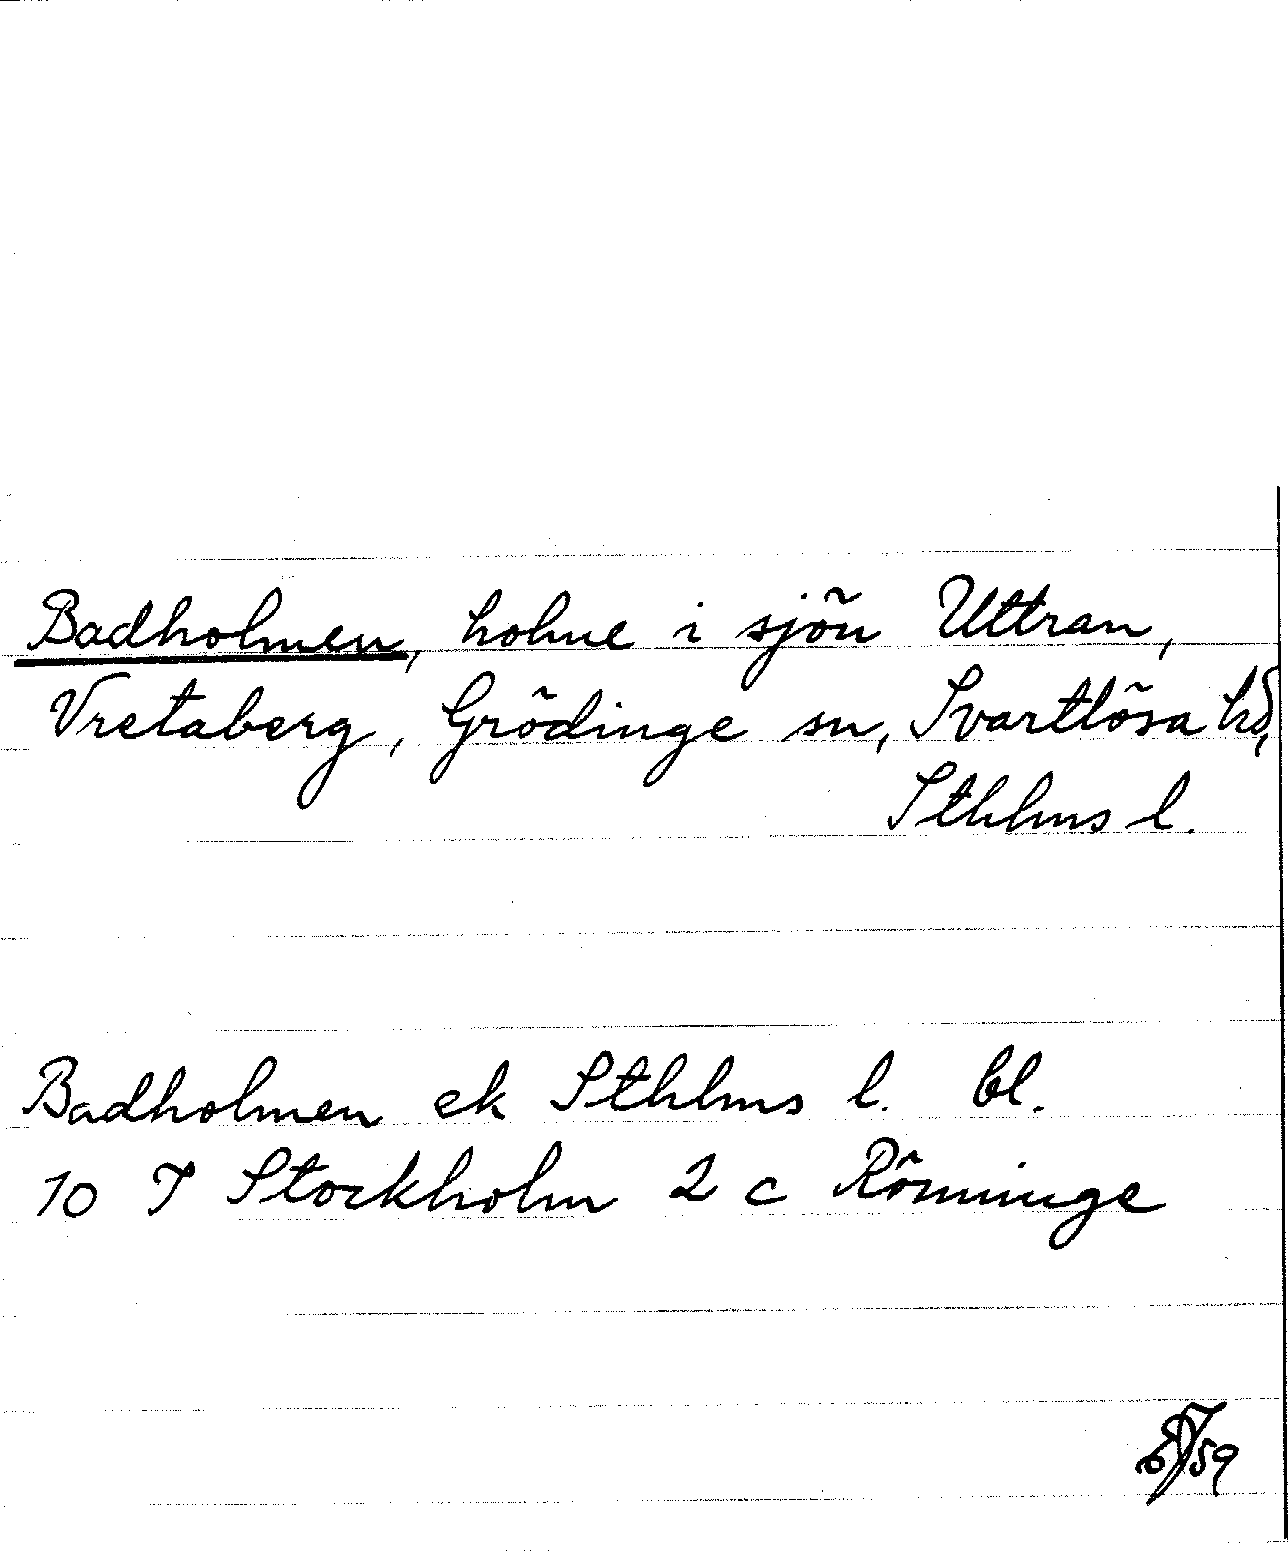 Badholmen, holme i sjön Uttran,
Vretaberg, Grödinge sn, Svartlösa hd,
Sthlms l.
Badholmen ek Sthlms l. bl.
10 I Stockholm 2 c Rönninge
/59